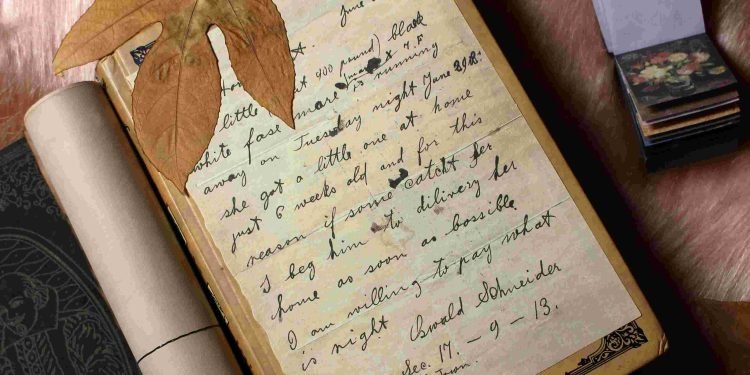 June
little 400 pound) black
white fase mare is running
away on Tuesday night June 29.
she got a little one at home
just 6 weeks old and for this
reason if some catcht her
I beg him to dilivery her
home as soon as bossible
I am willing to pay what
is right Oswald Schneider
Sec. 17. – 9 – 13.